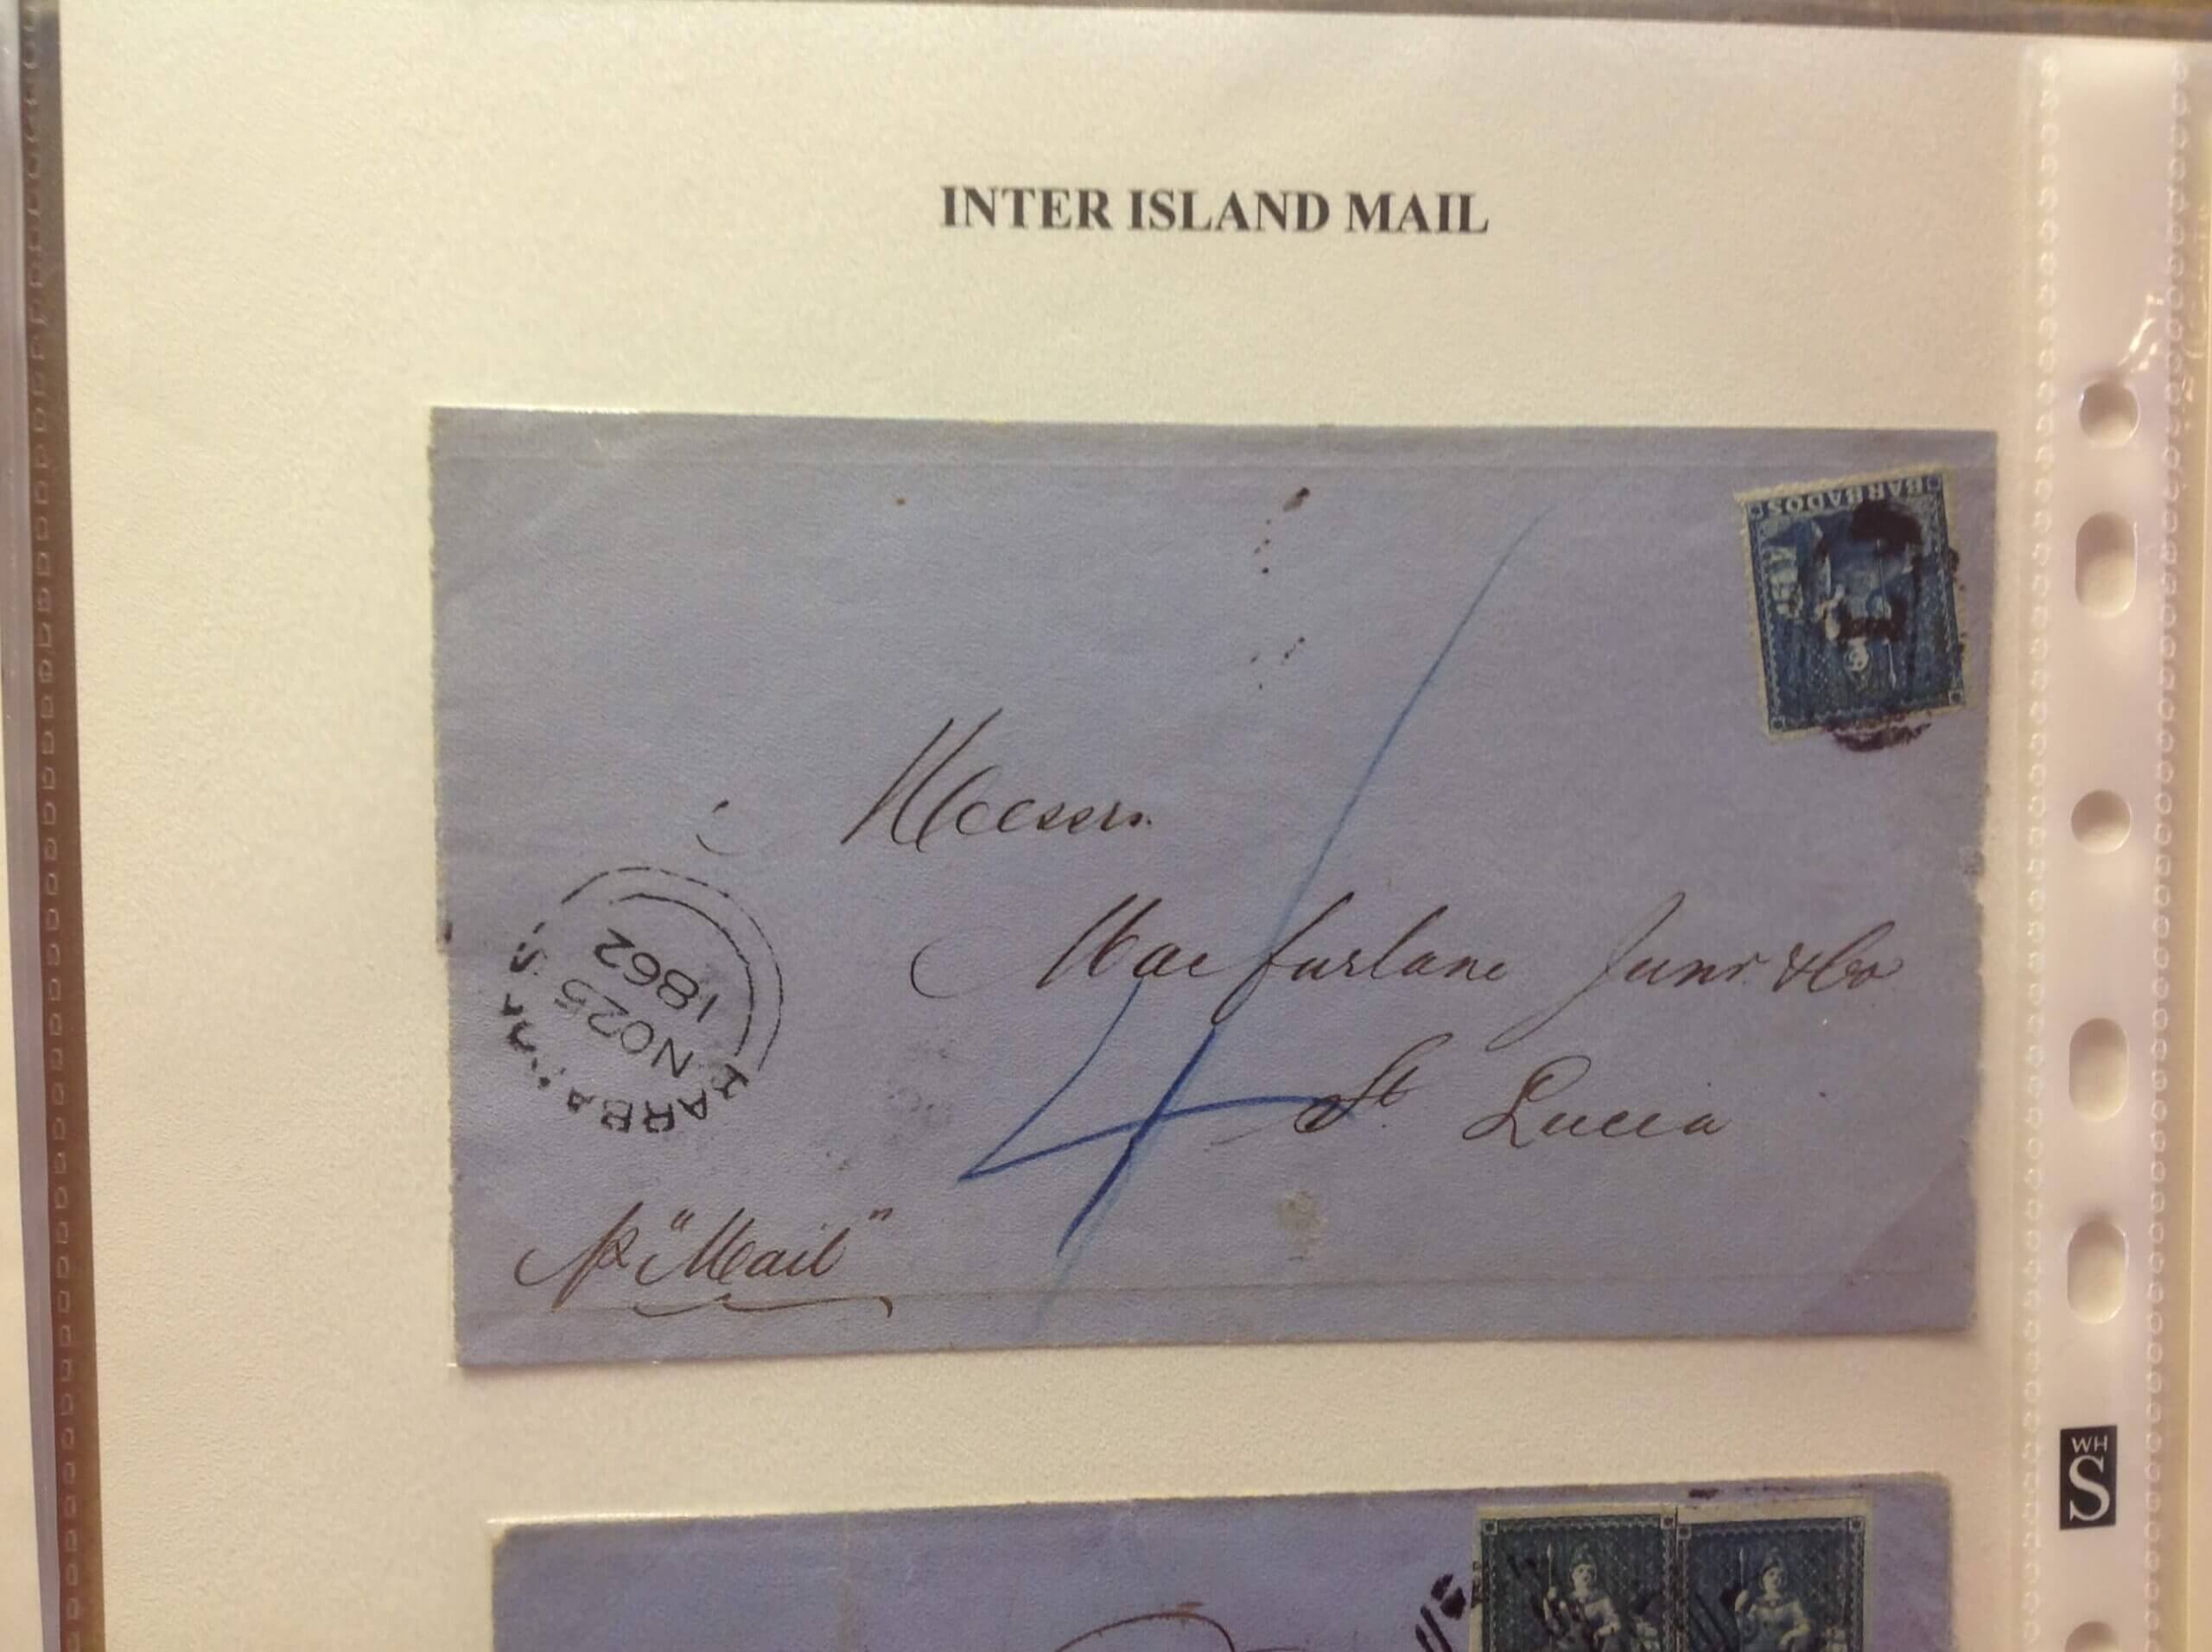 INTER ISLAND MAIL
BARBADOS
Messrs.
Macfarlane Junr. & Co
St. Lucia
4
BARBADOS
NO 25
1862
p "Mail"
WH
S